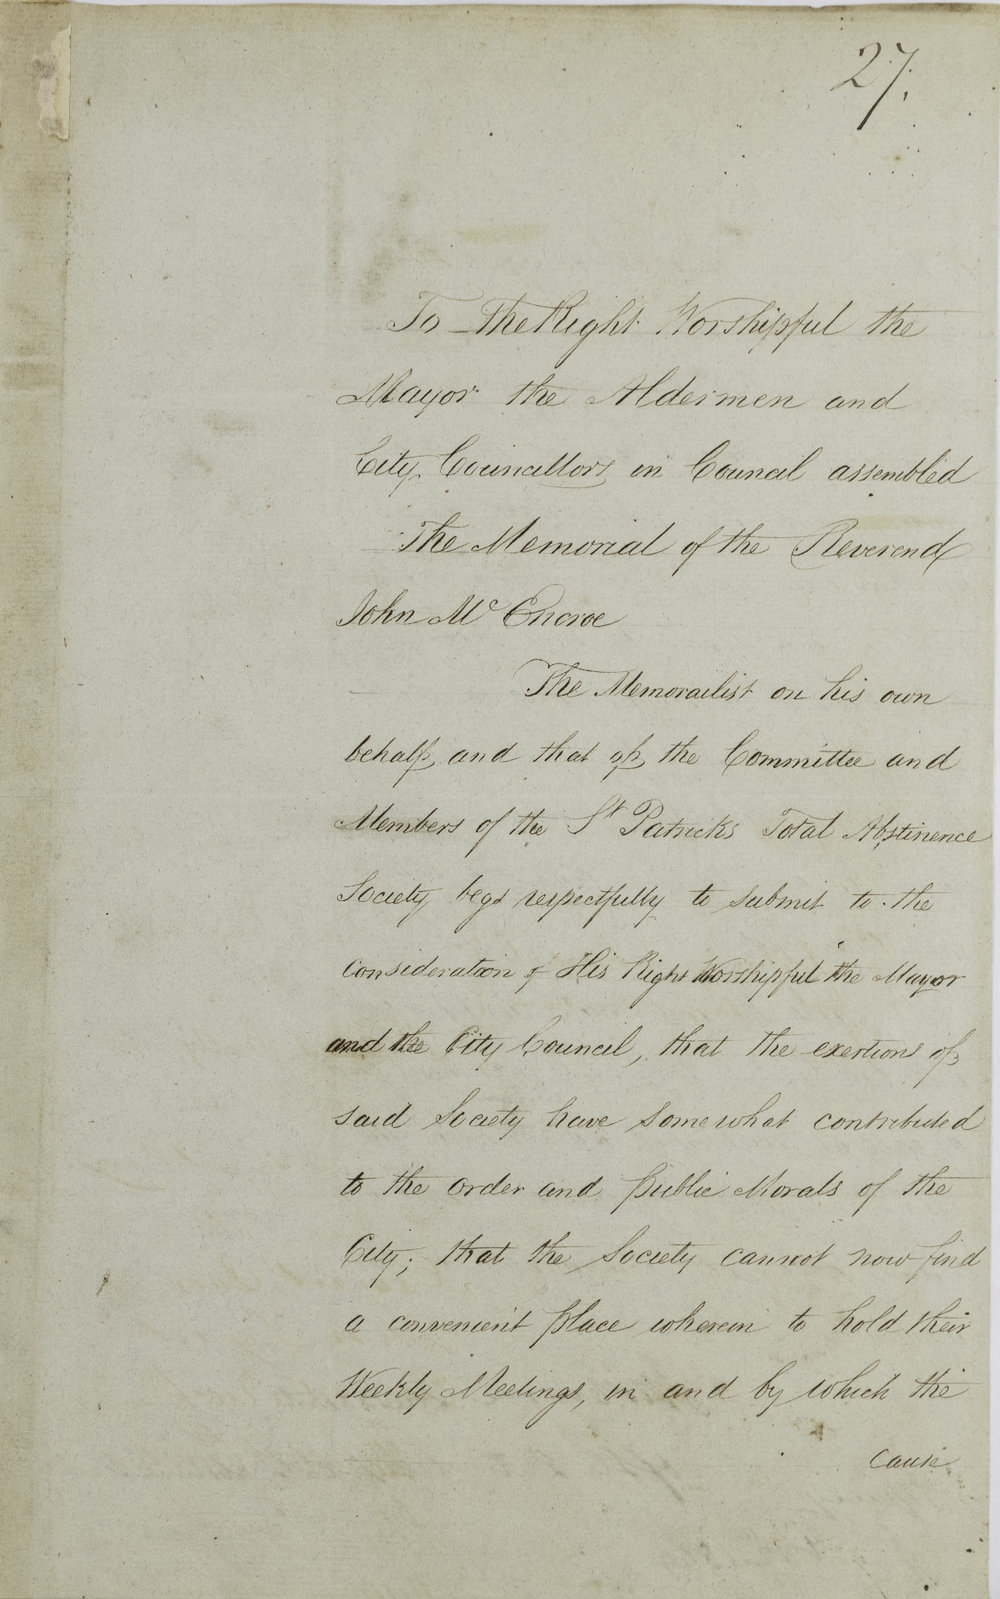 27.
To the Right Worshipful the
Mayor the Aldermen and
City Councillors in Council assembled
The Memorial of the Reverend
John Mc Encroe
The Memorailist on his own
behalf, and that of the Committee and
Members of the St Patricks Total Abstinence
Society begs respectfully to submit to the
consideration of His Right Worshipful the Mayor
and the City Council, that the exertions of
said Society have somewhat contributed
to the order and public Morals of the
City; that the Society cannot now find
a convenient place wherein to hold their
Weekly Meetings, in and by which the
cause